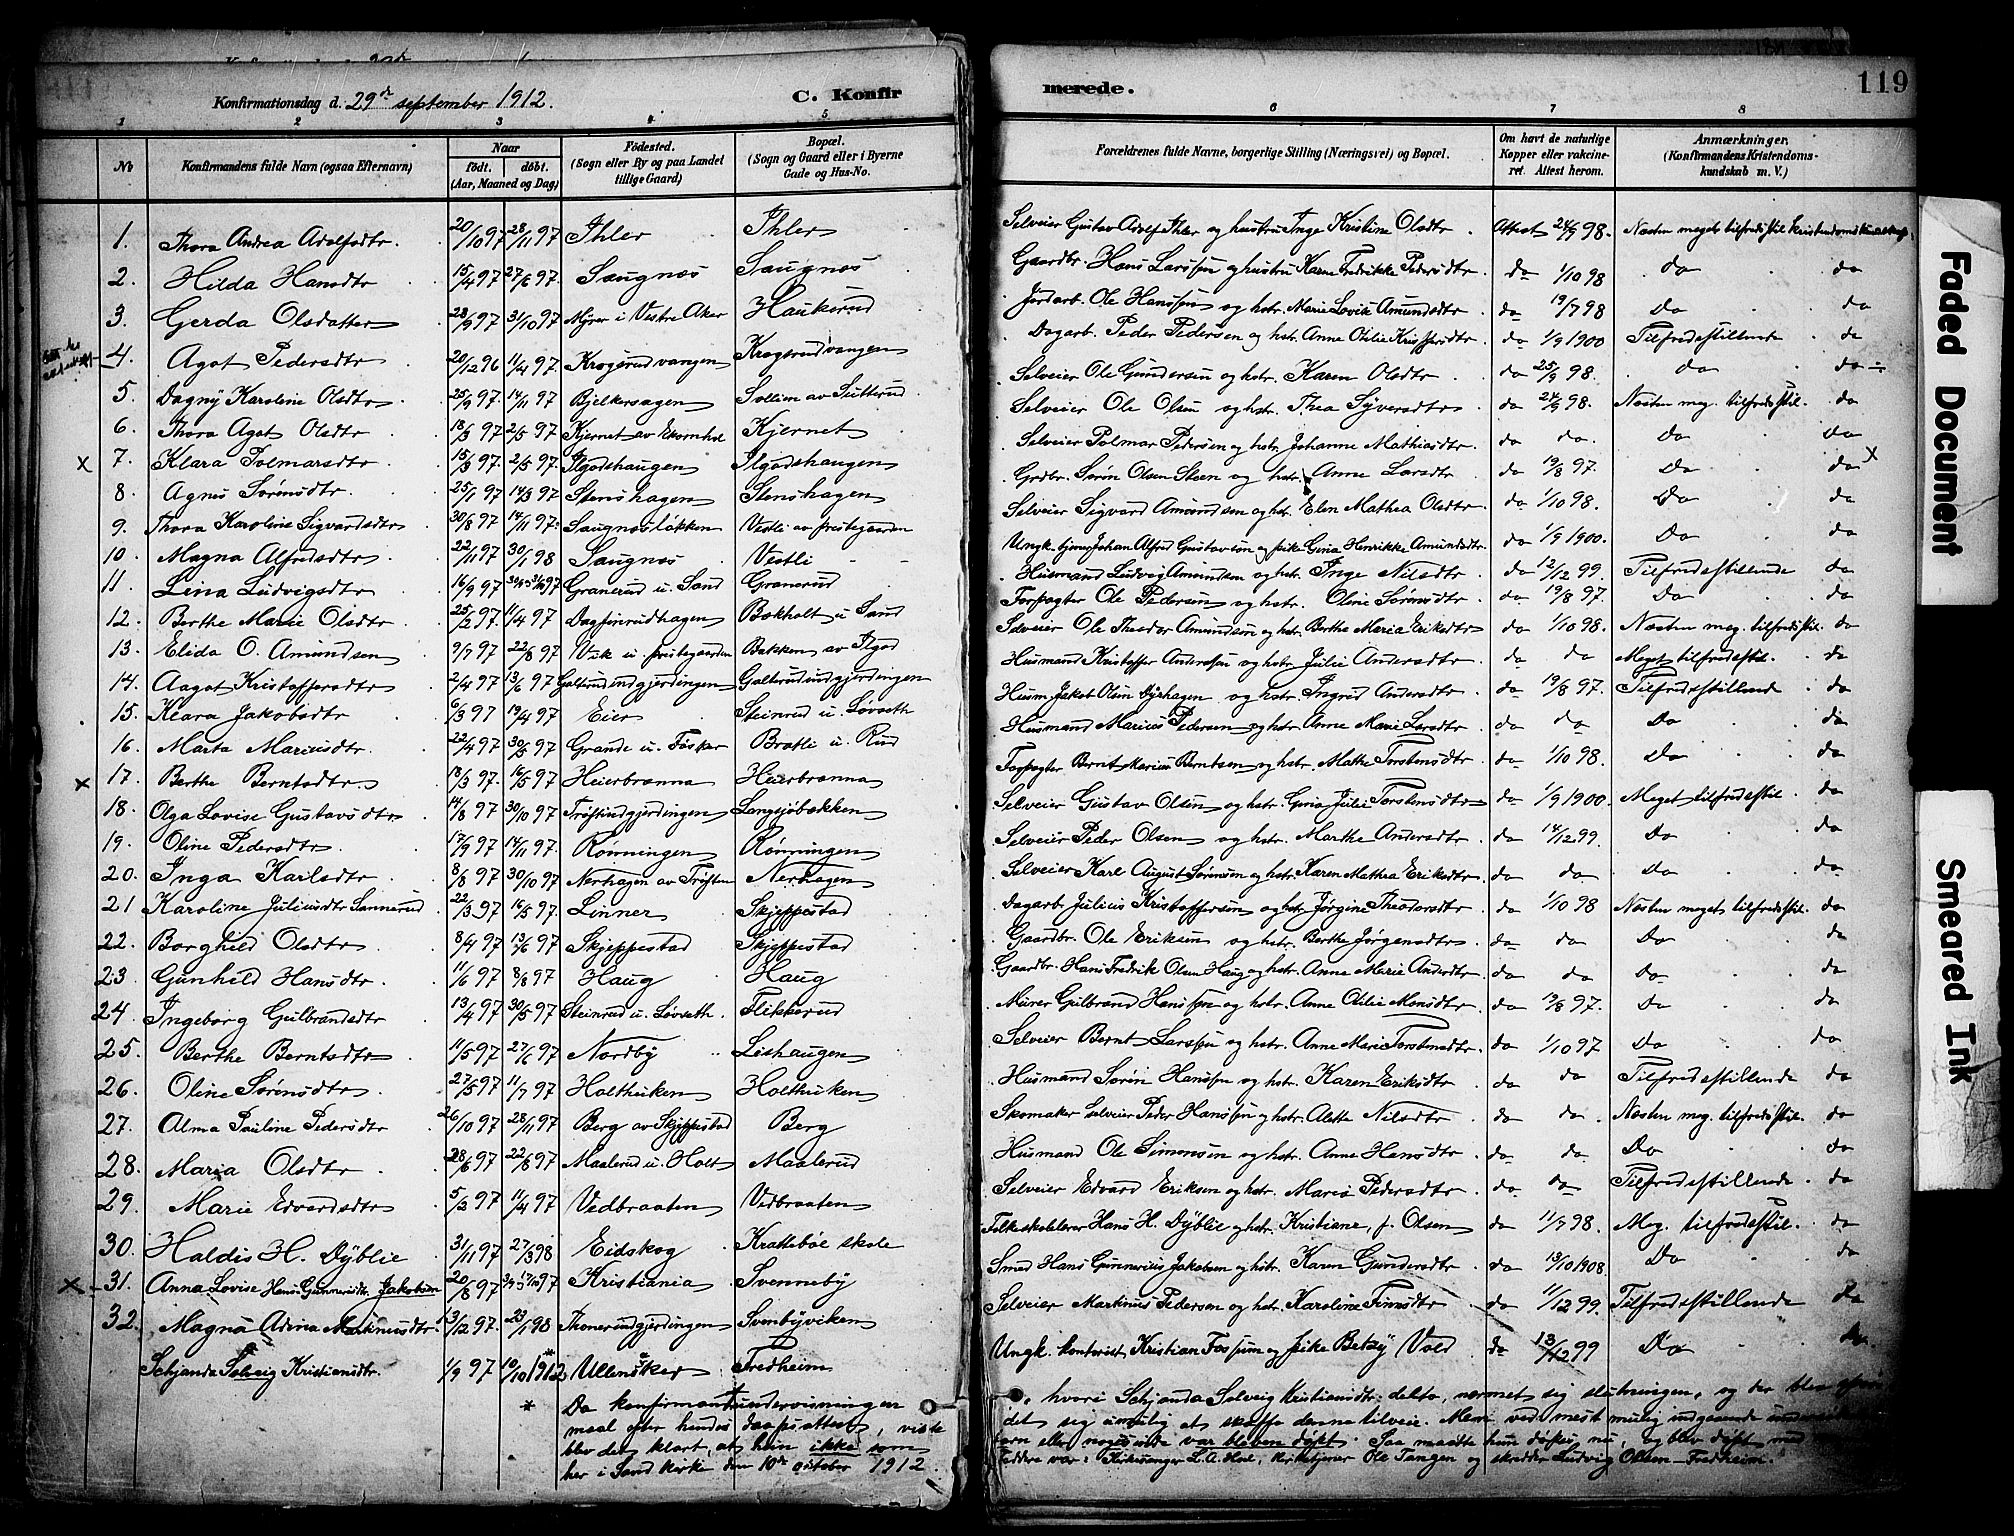 119
Konfirmationsdag d. 29de september 1912.
C. Konfirmerede.
1 2 3 4 5 6 7 8
No. Konfirmandens fulde Navn (ogsaa Efternavn) Naar født. døbt. (Aar, Maaned og Dag) Fødested. (Sogn eller By og paa Landet tillige Gaard) Bopæl. (Sogn og Gaard eller i Byerne Gade og Hus-No. Forældrenes fulde Navne, borgerlige Stilling (Næringsvei) og Bopæl. Om havt de naturlige Kopper eller vakcineret. Attest herom. Anmærkninger. (Konfirmandens Kristendomskundskab m. V.)
1. Thora Andrea Adolfsdtr. 20/10 97 28/11 97 Ihler Ihler Selveier Gustav Adolf Ihler og hustru Inge Kristine Olsdtr Attest 24/9 98. Næsten meget tilfredsstil. kristendomskundskap.
2. Hilda Hansdtr 15/4 97 27/6 97 Saugnæs Saugnæs Gaardbr. Hans Larssen og hustru Karen Fredrikke Pedersdtr do 1/10 98 do do
3. Gerda Olsdatter 28/9 97 31/10 97 Myrer i Vestre Aker Haukerud Jordarb. Ole Hanssen og hstr. Marie Lovise Amundsdtr do 19/7 98 Do do
4. Agot Pedersdtr 20/12 96 11/4 97 Krogsrudvangen Krogsrudvangen Dagarb. Peder Pedersen og hstr. Anne Otilie Kristoffersdtr. do 1/9 1900 Tilfredsstillende do
5. Dagny Karoline Olsdtr 25/9 97. 14/11 97 Bjelkersagen Sollien av Sutterud Selveier Ole Gundersen og hstr. Karen Olsdtr do 25/9 98. do do
6. Thora Agot Olsdtr 18/3 97 2/5 97 Kjernet av Ekornhol Kjernet Selveier Ole Olsen og hstr. Thea Syversdtr do 24/9 98. Næsten meg. tilfredsstil. do
x 7. Klara Polmarsdtr 15/3 97. 2/5 97 Ilgodshaugen Ilgodshaugen Selveier Polmar Pedersen og hstr. Johanne Mathiasdtr do do. Do do x
8. Agnes Sørensdtr. 25/1 97 14/3 97 Stenshagen Stenshagen Grdbr. Søren Olsen Steen og hstr. Anne Larsdtr do 19/8 97. Do do
9. Thora Karoline Sigvardsdtr 30/8 97 14/11 97 Saugnæsløkken Vestli av prestegaarden Selveier Sigvard Amundsen og hstr. Elen Mathea Olsdtr do 1/10 98. Do do
10. Magna Alfredsdtr 22/11 97 30/1 98 Saugnæs Vestli Ungk. Johan Alfred Gustavsen og pike Gina Henrikke Amundsdtr. do 1/9 1900. Do do
11. Lina Ludvigsdtr 16/9 97 Granerud u. Sand Granerud Husmand Ludvig Amundsen og hstr. Inge Nilsdtr do 12/12 99. Tilfredsstillende do
12. Berthe Marie Olsdtr 25/2 97. 11/4 97 Dagfinrudhagen Bækholt u Sand Forpagter Ole Pedersen og hstr. Oline Sørensdtr do 19/8 97. Do do
13. Elida O. Amundsen 9/7 97 22/8 97 Vik u prestegaarden Bakken av Ilgod Selveier Ole Theodor Amundsen og hstr Berthe Maria Eriksdtr do 1/10 98. Næsten meg. tilfredsstil. do
14. Aagot Kristoffersdtr 2/4 97 13/6 97 Galterudindgjerdingen Galterudindgjerdingen Husmand Kristoffer Andersen og hstr. Julie Andersdtr. do do Meget tilfredsstil. do
15. Klara Jakobsdtr 6/3 97 19/4 97 Eier Steinrud u. Løvseth Husm. Jakob Olsen Dyrhagen og hstr. Ingrid Andersdtr. do 19/8 97. Tilfredsstillende do
16. Marta Mariusdtr. 22/4 97 30/5 97 Grande u. Fosker Bratli u. Rud Husmand Marius Pedersen og hstr. Anne Marie Larsdtr do do Do do
x 17. Berthe Berntsdtr 18/3 97. 16/5 97 Heierbrænna Heierbrænna Forpagter Bernt Marius Berntsen og hstr. Mathe Torstensdtr do 1/10 98. Do do
18. Olga Lovise Gustavsdtr 14/8 97 30/10 97 Trøftindgjerdingen Langsjøbækken Selveier Gustav Olsen og hstr. Gina Julie Torstensdtr do 1/9 1900. Meget tilfredsstil. do
19. Oline Pedersdtr. 17/9 97 14/11 97. Rønningen Rønningen Selveier Peder Olsen og hstr. Marthe Andersdtr do 14/12 99. Do do
20. Inga Karlsdtr 8/8 97 30/10 97 Nerhagen av Trøften Nerhagen Selveier Karl August Sørensen og hstr. Karen Mathea Eriksdtr. do do Do do
21 Karoline Juliusdtr Sannerud 22/3 97 16/5 97. Linner Skjeppestad Dagarb Julius Kristoffersen og hstr. Jørgine Theodorsdtr do 1/10 98 Næsten meget tilfredsstil. do
22. Borghild Olsdtr 8/4 97 13/6 97 Skjeppestad Skjeppestad Gaardbr. Ole Eriksen og hstr. Berthe Jørgensdtr do do Do do
23 Gunhild Hansdtr 11/6 97 8/8 97 Haug Haug Gaardbr. Hans Fredrik Olsen Haug og hstr. Anne Marie Andersdtr do do Do do
24. Ingeborg Gulbrandsdtr 13/4 97 30/5 97 Steinrud u. Løvseth. Flikkerud Murer Gulbrand Hanssen og hstr. Anne Otilie Monsdtr do 19/8 97. Do do
25. Berthe Berntsdtr 11/5 97 27/6 97 Nordby Lishaugen Selveier Bernt Larssen og hstr. Anne Marie Torstensdtr. do 1/10 97 Do do
26. Oline Sørensdtr 27/5 97 11/7 97 Holthuken Holthuken Husmand Søren Hanssen og hstr. Karen Eriksdtr do do Tilfredsstillende do
27. Alma Pauline Pedersdtr 26/10 97 28/11 97 Berg av Skjeppestad Berg Skomaker Selveier Peder Hanssen og hstr. Alette Nilsdtr do do. Næsten meg. tilfredsstil. do
28. Maria Olsdtr 28/6 97 22/8 97 Maalerud u. Holt Maalerud Husmand Ole Simensen og hstr. Anne Hansdtr do do. Do do
29. Marie Edvardsdtr 5/2 97 11/4 97 Vedbraaten Vedbraaten Selveier Edvard Eriksen og hstr. Maria Pedersdtr do do Tilfredsstillende do
30. Haldis H. Dyblie 31/11 97 27/3 98 Eidskog Krattebøl skole Folkeskolelærer Hans H. Dyblie og hstr. Kristiane, f. Olsen do 11/7 98. Meg. tilfredsstil. do
x 31. Anna Lovise Hans Gunneriusdtr. Jakobsen 20/8 97 Kristiania Svenneby Smed Hans Gunnerius Jakobsen og hstr. Karen Gundersdtr do 13/10 1908. Do do
32. Magna Adina Markusdtr. 13/12 97. 23/1 98 Thonerudgjerdingen Svenbyviken Selveier Martinus Pedersen og hstr. Karoline Finnsdtr do 11/12 99. Tilfredsstillende do
Schjanda Solveig Kristiansdtr. 1/9 97 10/10 1912 * Ullensaker Fredheim Ungk. kontorist Kristian Fossum og pike Betsy Vold do 13/12 99 Do do
* Da konfirmantundervisningen, hvori Schjanda Solveig Kristiansdtr. deltok, nærmet sig slutningen, og der blev
maal efter hendes daapsattest, viste det sig umulig at skaffe denne tilveie. Men ved mest mulig indgaaende
blev det klart, at hun ikke som barn eller nogensinde var bleven døpt. Saa maatte hun døpes nu, og blev døpt
her i Sand kirke den 10de oktober 1912. Faddere var: Kirkesanger L.A. Hoel, kirketjener Ole Tangen og skrædder Ludvig Olsen – Fredheim.
Faded Document
Smeared Ink